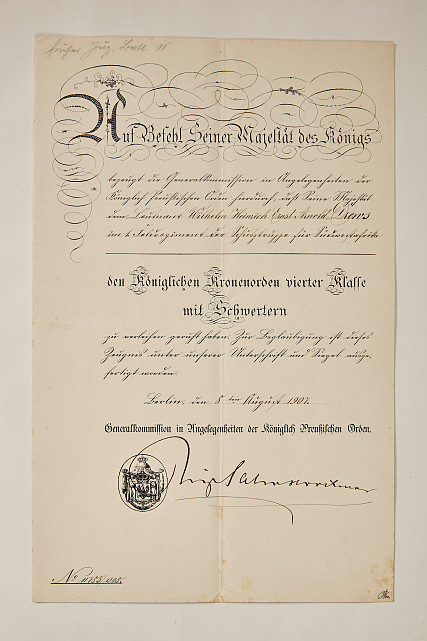 früher Jäg. Batl. 11
Auf Befehl Seiner Majestät des Königs
bezeugt die Generalkommission in Angelegenheiten der
Königlich Preußischen Orden hierdurch, daß Seine Majestät
dem Leutnant Wilhelm Heinrich Ernst Arnold Drews
im 1. Feldregiment der Schutztruppe für Südwestafrika
den Königlichen Kronenorden vierter Klasse
mit Schwertern
zu verleihen geruht haben. Zur Beglaubigung ist dieses
Zeugnis unter unserer Unterschrift und Siegel ausge-
fertigt worden.
Berlin, den 8ten August 1907.
Generalkommission in Angelegenheiten der Königlich Preußischen Orden.
No